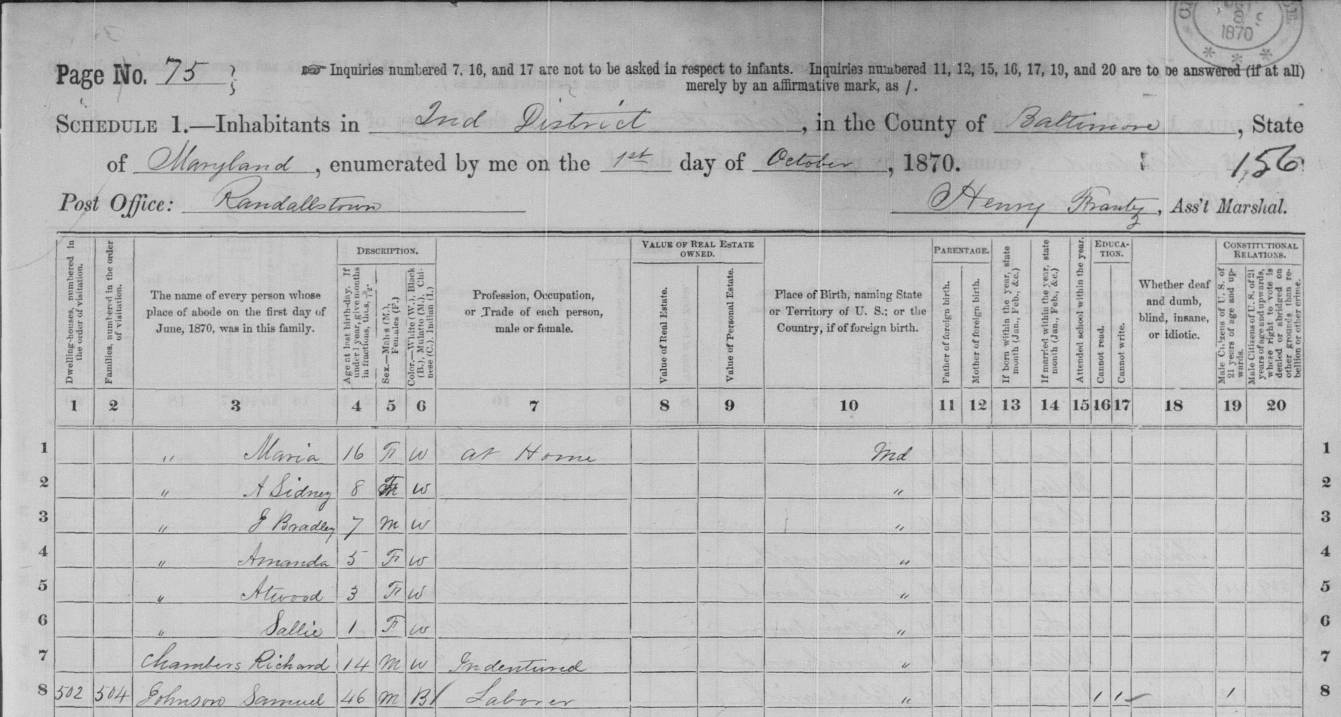 1870
Page No. 75
Inquiries numbered 7, 16, and 17 are not to be asked in respect to infants. Inquiries numbered 11, 12, 15, 16, 17, 19, and 20 are to be answered (if at all)
merely by an affirmative mark, as /.
SCHEDULE 1.—Inhabitants in 2nd District, in the County of Baltimore, State
of Maryland, enumerated by me on the 1st day of October, 1870. 156
Post Office: Randallstown Henry Frantz, Ass't Marshal.
Dwelling-houses, numbered in the order of visitation.
Families, numbered in the order of visitation.
The name of every person whose place of abode on the first day of June, 1870, was in this family.
DESCRIPTION.
Age at last birth-day. If under 1 year, give months in fractions, thus, 3/12.
Sex.—Males (M.), Females (F.)
Color.—White (W.), Black (B.), Mulatto (M.), Chinese (C.), Indian (I.)
Profession, Occupation, or Trade of each person, male or female.
VALUE OF REAL ESTATE OWNED.
Value of Real Estate.
Value of Personal Estate.
Place of Birth, naming State or Territory of U. S.; or the Country, if of foreign birth.
PARENTAGE.
Father of foreign birth.
Mother of foreign birth.
If born within the year, state month (Jan., Feb., &c.)
If married within the year, state month (Jan., Feb., &c.)
Attended school within the year.
EDUCATION.
Cannot read.
Cannot write.
Whether deaf and dumb, blind, insane, or idiotic.
CONSTITUTIONAL RELATIONS.
Male Citizens of U. S. of 21 years of age and upwards.
Male Citizens of U. S. of 21 years of age and upwards, whose right to vote is denied or abridged on other grounds than rebellion or other crime.
1 2 3 4 5 6 7 8 9 10 11 12 13 14 15 16 17 18 19 20
1 " Maria 16 F W at Home Md 1
2 " A Sidney 8 W " 2
3 " E Bradley 7 M W " 3
4 " Amanda 5 F W " 4
5 " Atwood 3 F W " 5
6 " Sallie 1 F W " 6
7 Chambers Richard 14 M W Indentured " 7
8 502 504 Johnson Samuel 46 M B Laborer " / / / 8